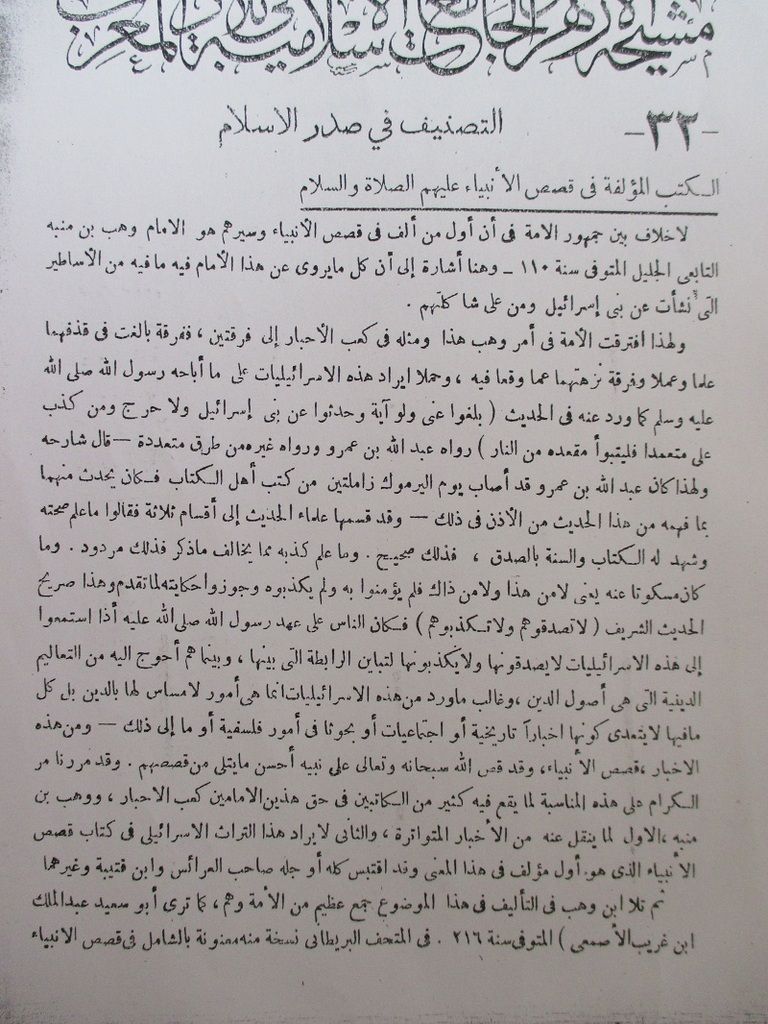 مشيخة الازهر الجامع الاسلامية المغرب
-٣٢- التصنيف في صدر الاسلام
الكتب المؤلفة فى قصص الأنبياء عليهم الصلاة والسلام
لاخلاف بين جمهور الامة فى أن أول من ألف فى قصص الأنبياء وسيرهم هو الامام وهب بن منبه
التابعى الجليل المتوفى سنة ١١٠ ـ وهنا أشارة إلى أن كل مايروى عن هذا الأمام فيه مافيه من الأساطير
التى نشأت عن بنى إسرائيل ومن على شا كلتهم .
ولهذا افترقت الأمة فى أمر وهب هذا ومثله فى كعب الأحبار إلى فرقتين ، ففرقة بالغت فى قذفهما
علما وعملا وفرقة نزهتهما عما وقعا فيه ، وحملا ايراد هذه الاسرائيليات على ما أباحه رسول الله صلى الله
عليه وسلم كما ورد عنه فى الحديث ( بلغوا عنى ولو آية وحدثوا عن بنى إسرائيل ولا حرج ومن كذب
على متعمدا فليتبوأ مقعده من النار ) رواه عبد الله بن عمرو ورواه غيره من طرق متعددة — قال شارحه
ولهذا كان عبد الله بن عمرو قد أصاب يوم اليرموك زاملتين من كتب أهل الكتاب فكان يحدث منهما
بما فهمه من هذا الحديث من الأذن فى ذلك — وقد قسمها علماء الحديث إلى أقسام ثلاثة فقالوا ماعلم صحته
وشهد له الكتاب والسنة بالصدق ، فذلك صحيح . وما علم كذبه مما يخالف ماذكر فذلك مردود . وما
كان مسكوتا عنه يعنى لامن هذا ولامن ذاك فلم يؤمنوا به ولم يكذبوه وجوزوا حكايته لما تقدم وهذا صريح
الحديث الشريف ( لاتصدقوهم ولاتكذبوهم ) فكان الناس على عهد رسول الله صلى الله عليه أذا استمعوا
إلى هذه الاسرائيليات لايصدقونها ولايكذبونها لتباين الرابطة التى بينها ، وبينما هم أحوج اليه من التعاليم
الدينية التى هى أصول الدين ، وغالب ماورد من هذه الاسرائيليات انما هى أمور لامساس لها بالدين بل كل
مافيها لايتعدى كونها اخباراً تاريخية أو اجتماعيات أو بحوثا فى أمور فلسفية أو ما إلى ذلك — ومن هذه
الاخبار ، قصص الأنبياء ، وقد قص الله سبحانه وتعالى على نبيه أحسن مايتلى من قصصهم . وقد مررنا مر
الكرام على هذه المناسبة لما يقع فيه كثير من الكاتبين فى حق هذين الامامين كعب الاحبار ، ووهب بن
منبه ، الاول لما ينقل عنه من الأخبار المتواترة ، والثانى لايراد هذا التراث الاسرائيلى فى كتاب قصص
الأنبياء الذى هو أول مؤلف فى هذا المعنى وقد اقتبس كله أو جله صاحب العرائس وابن قتيبة وغيرهما
ثم تلا ابن وهب فى التأليف فى هذا الموضوع جمع عظيم من الأمة وهم ، كما ترى أبو سعيد عبدالملك
ابن غريب الأصمعى ) المتوفى سنة ٢١٦ . فى المتحف البريطانى نسخة منه معنونة بالشامل فى قصص الانبياء